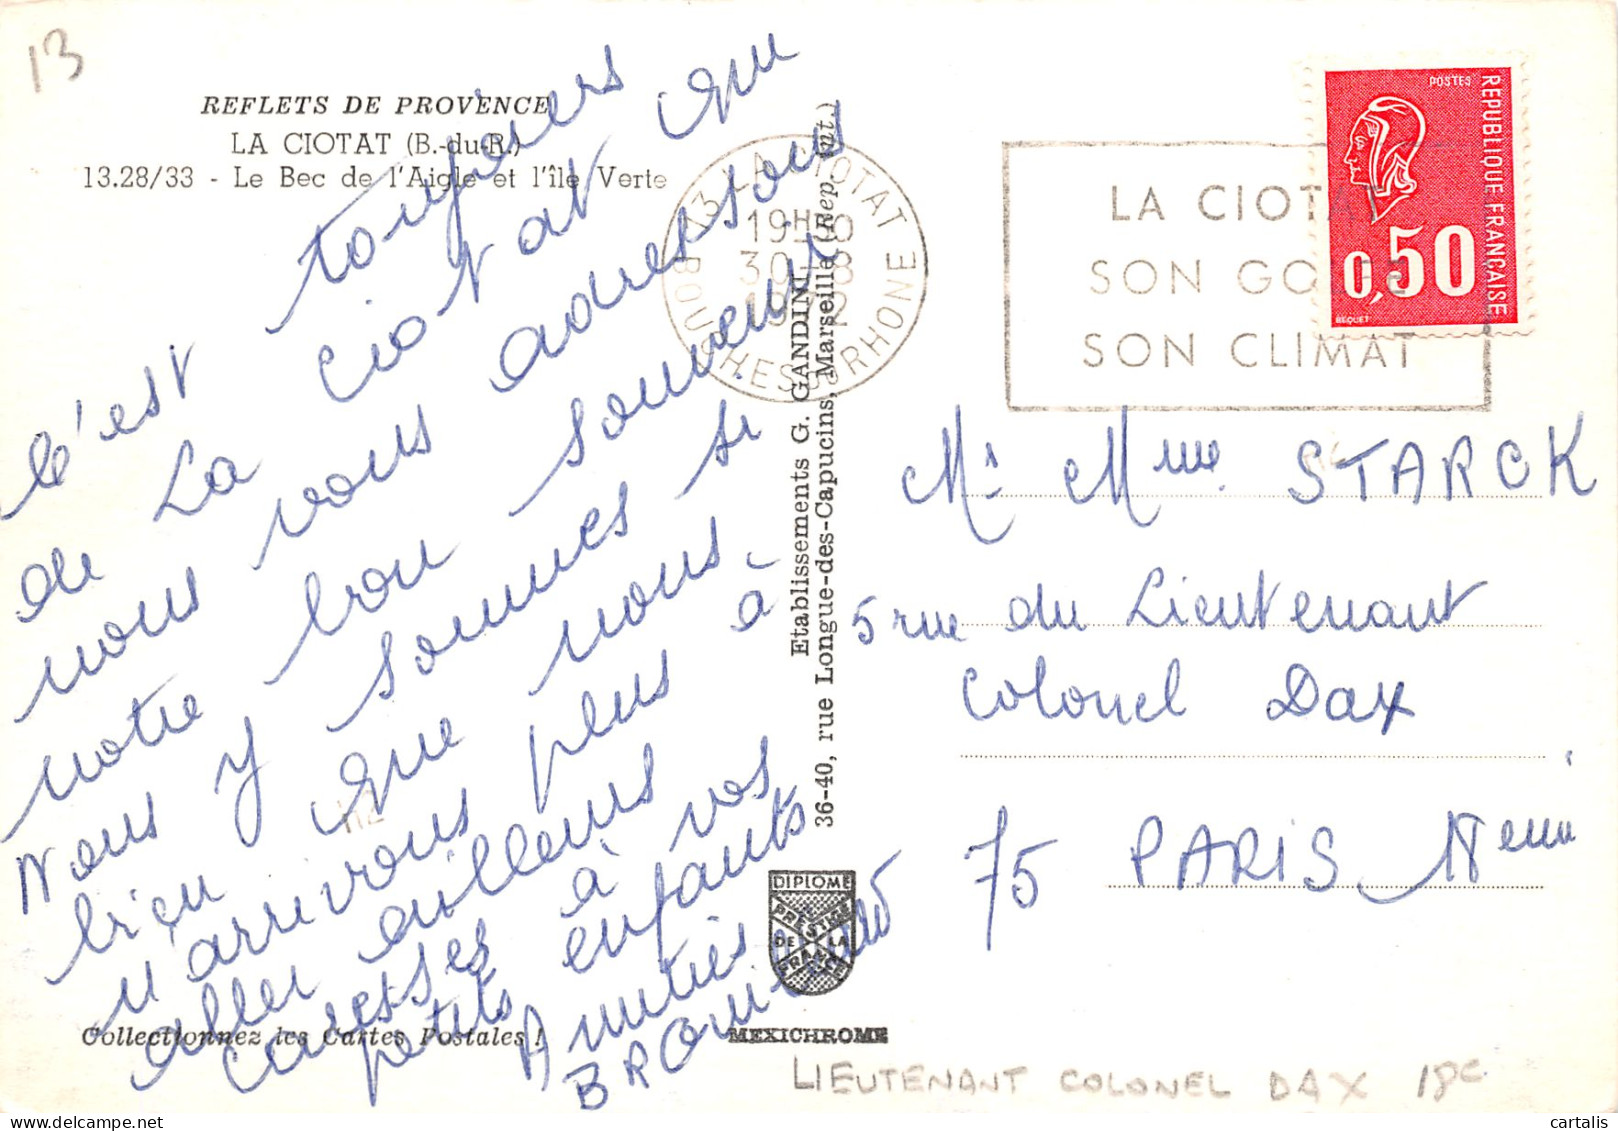 13
REFLETS DE PROVENCE
LA CIOTAT (B.-du-R.)
13.28/33 - Le Bec de l'Aigle et l'île Verte
C'est toujours
de La Ciotat que
nous vous adressons
notre bon souvenir.
Nous y sommes si
bien que nous
n'arrivons plus à
aller ailleurs
caresses à vos
petits enfants
Amitiés
Etablissements G. GANDINI
36-40, rue Longue-des-Capucins, Marseille (Rep. int.)
13 LA CIOTAT
19H30
30-8
BOUCHES DU RHONE
LA CIOTAT
SON GOLFE
SON CLIMAT
POSTES
REPUBLIQUE FRANCAISE
0,50
BEQUET
Mr Mme STARCK
5 rue du Lieutenant
Colonel Dax
75 PARIS
DIPLOME
PRESTIGE
DE LA
FRANCE
Collectionnez les Cartes Postales !
MEXICHROME
LIEUTENANT COLONEL DAX 18e
cartalis